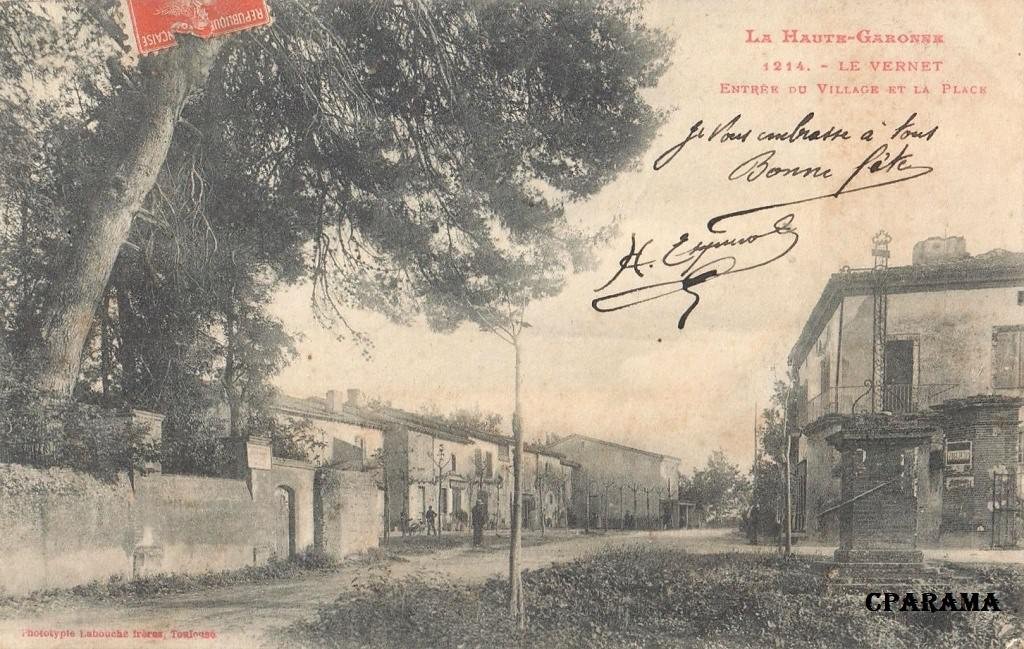 RÉPUBLIQUE
ÇAISE
LA HAUTE-GARONNE
1214. - LE VERNET
ENTRÉE DU VILLAGE ET LA PLACE
Je Vous embrasse à tous
Bonne fête
H.
CPARAMA
Phototypie Labouche frères, Toulouse